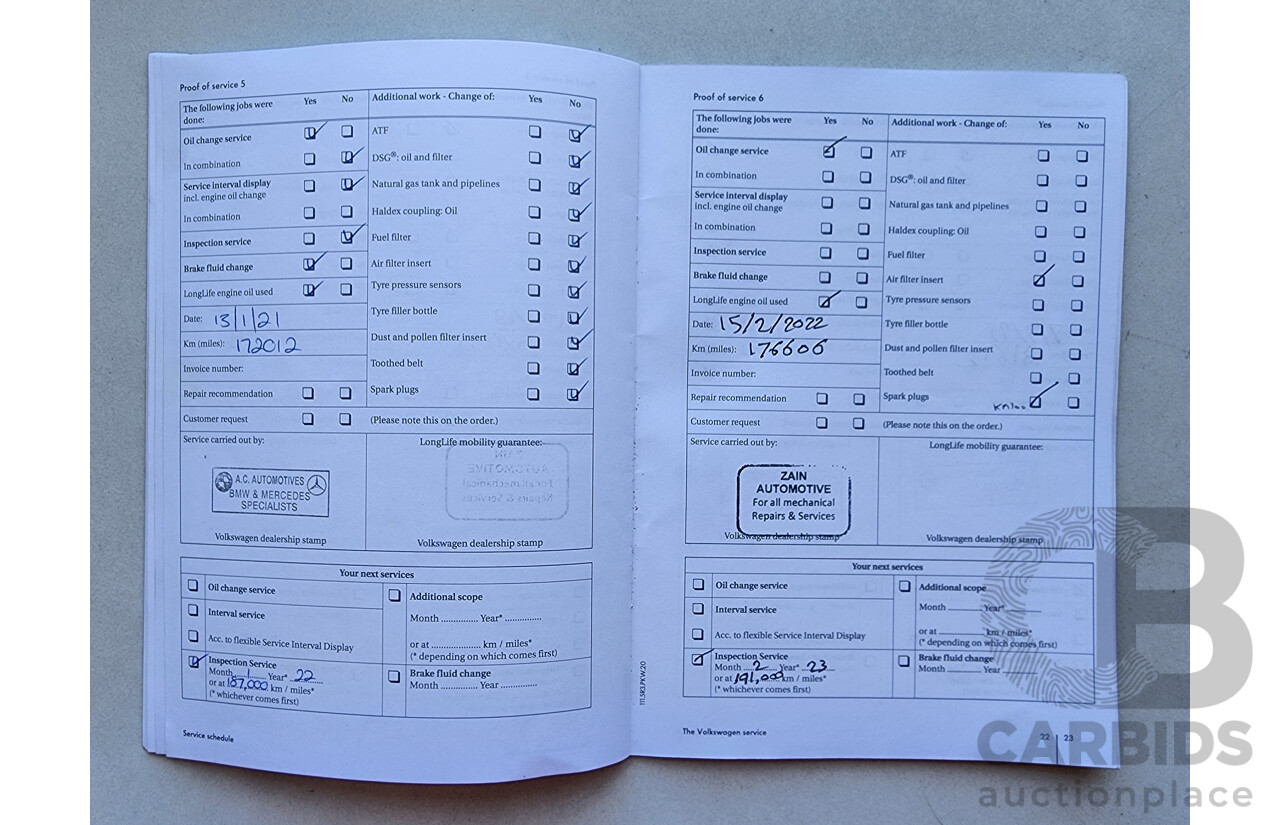 Proof of service 5
The following jobs were done: Yes No
Oil change service
In combination
Service interval display
incl. engine oil change
In combination
Inspection service
Brake fluid change
LongLife engine oil used
Date: 13/1/21
Km (miles): 172012
Invoice number:
Repair recommendation
Customer request
Additional work - Change of: Yes No
ATF
DSG®: oil and filter
Natural gas tank and pipelines
Haldex coupling: Oil
Fuel filter
Air filter insert
Tyre pressure sensors
Tyre filler bottle
Dust and pollen filter insert
Toothed belt
Spark plugs
(Please note this on the order.)
Service carried out by:
A.C. AUTOMOTIVES
BMW & MERCEDES
SPECIALISTS
Volkswagen dealership stamp
LongLife mobility guarantee:
Volkswagen dealership stamp
Your next services
Oil change service
Interval service
Acc. to flexible Service Interval Display
Inspection Service
Month 1 Year* 22
or at 187,000 km / miles*
(* whichever comes first)
Additional scope
Month ............... Year* ...............
or at .................... km / miles*
(* depending on which comes first)
Brake fluid change
Month ............... Year ...............
Service schedule
Proof of service 6
The following jobs were done: Yes No
Oil change service
In combination
Service interval display
incl. engine oil change
In combination
Inspection service
Brake fluid change
LongLife engine oil used
Date: 15/2/2022
Km (miles): 176606
Invoice number:
Repair recommendation
Customer request
Additional work - Change of: Yes No
ATF
DSG®: oil and filter
Natural gas tank and pipelines
Haldex coupling: Oil
Fuel filter
Air filter insert
Tyre pressure sensors
Tyre filler bottle
Dust and pollen filter insert
Toothed belt
Spark plugs
(Please note this on the order.)
Service carried out by:
ZAIN
AUTOMOTIVE
For all mechanical
Repairs & Services
Volkswagen dealership stamp
LongLife mobility guarantee:
Volkswagen dealership stamp
Your next services
Oil change service
Interval service
Acc. to flexible Service Interval Display
Inspection Service
Month 2 Year* 23
or at 191,000 km / miles*
(* whichever comes first)
Additional scope
Month ............ Year* ............
or at ............... km / miles*
(* depending on which comes first)
Brake fluid change
Month ............ Year ............
111.5R3.PKW.20
The Volkswagen service
22 | 23
CARBIDS
auctionplace